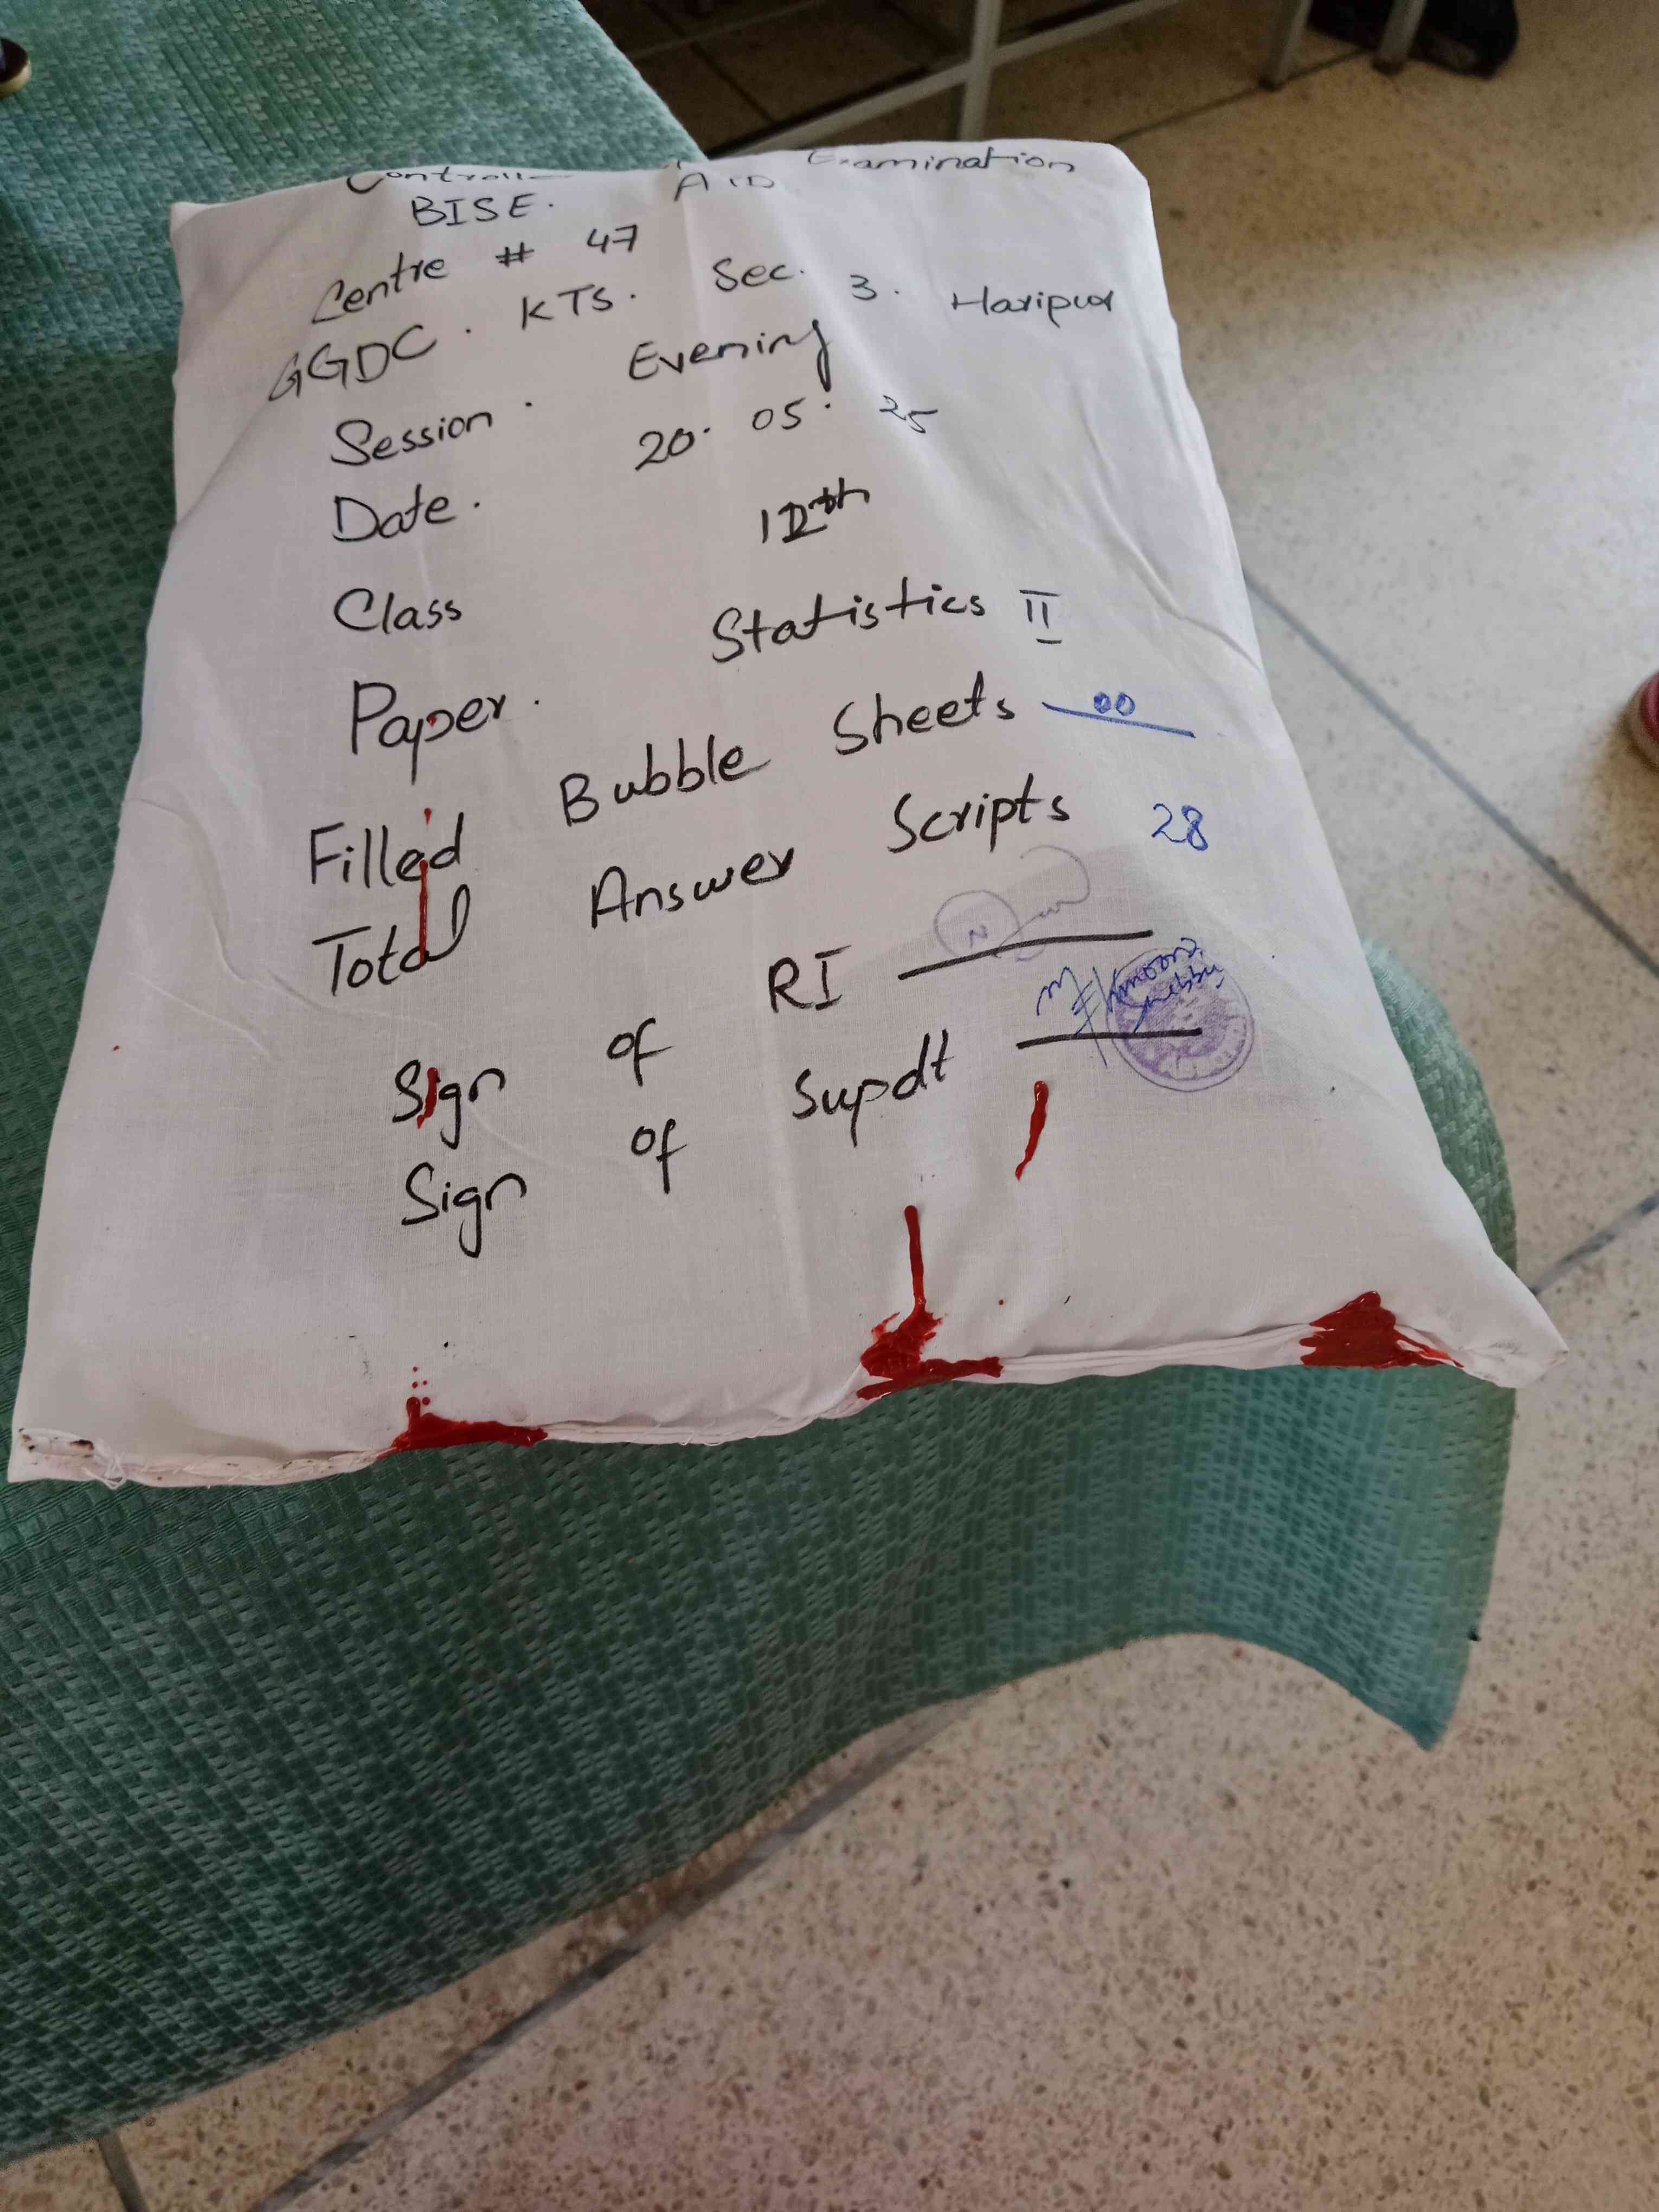 Examination
BISE. ATD
Centre # 47
GGDC. KTS. Sec. 3. Haripur
Session. Evening
Date. 20. 05. 25
Class 12th
Paper. Statistics II
Filled Bubble Sheets 00
Total Answer Scripts 28
Sign of RI
Sign of Supdt